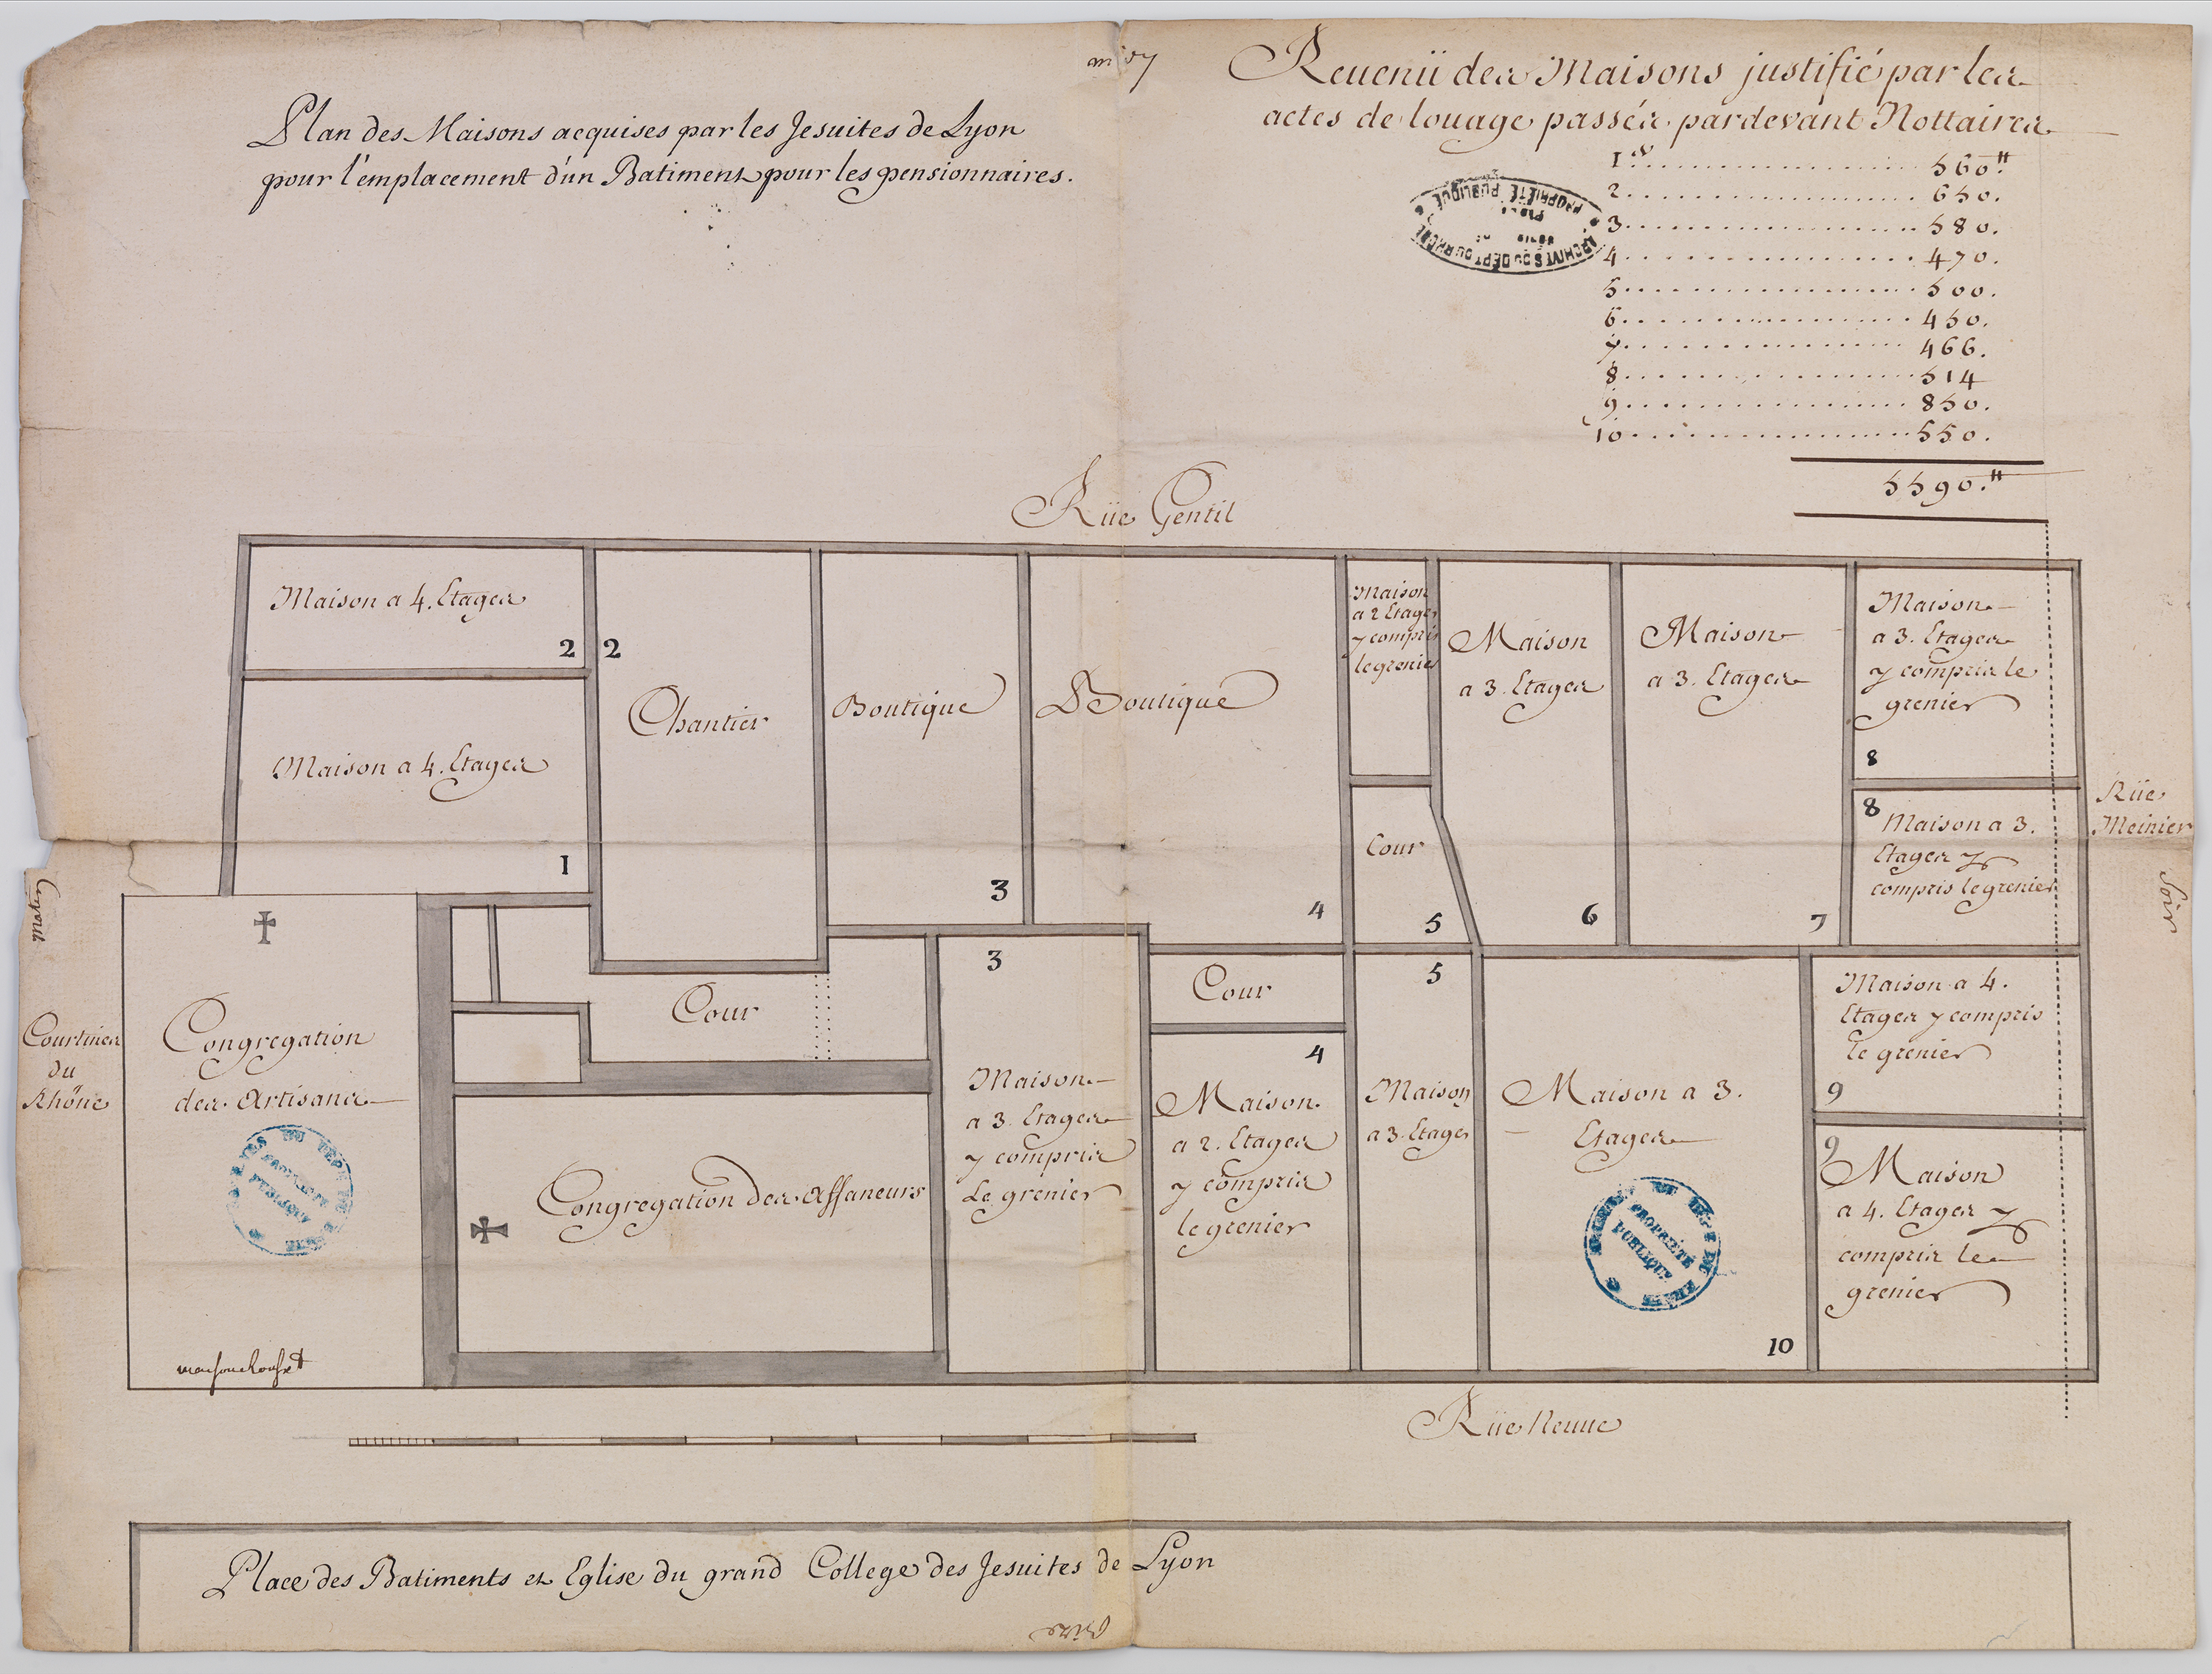 Plan des Maisons acquises par les Jesuites de Lyon
pour l'emplacement d'ün Batiment pour les pensionnaires.
Reuenü des Maisons justifié par les
actes de louage passés pardevant Nottaires
1er. 560.tt
2. 650.
3. 580.
4. 470.
5. 500.
6. 450.
7. 466.
8. 514
9. 850.
10. 550.
5590.tt
ARCHIVES DU DÉPT DU RHÔNE
PROPRIÉTÉ PUBLIQUE
Rüe Gentil
Maison a 4. Etages
2
2
Chantier
Maison a 4. Etages
1
Boutique
3
Boutique
4
Maison
a 2 Etages
y compris
le grenier
Cour
5
Maison
a 3. Etages
6
Maison
a 3. Etages
7
Maison
a 3. Etages
y compris le
grenier
8
8
Maison a 3.
Etages y
compris le grenier
Rüe
Meinier
Soir
Courtines
du
Rhône
Congregation
des Artisans
PROPRIÉTÉ
PUBLIQUE
Cour
Congregation des affaneurs
3
Maison
a 3. Etages
y compris
Le grenier
Cour
4
Maison
a 2. Etages
y compris
le grenier
5
Maison
a 3. Etages
Maison a 3.
Etages
PROPRIÉTÉ
PUBLIQUE
10
Maison a 4.
Etages y compris
le grenier
9
9
Maison
a 4. Etages y
compris le
grenier
Rüe Neuue
Place des Batiments et Eglise du grand College des Jesuites de Lyon